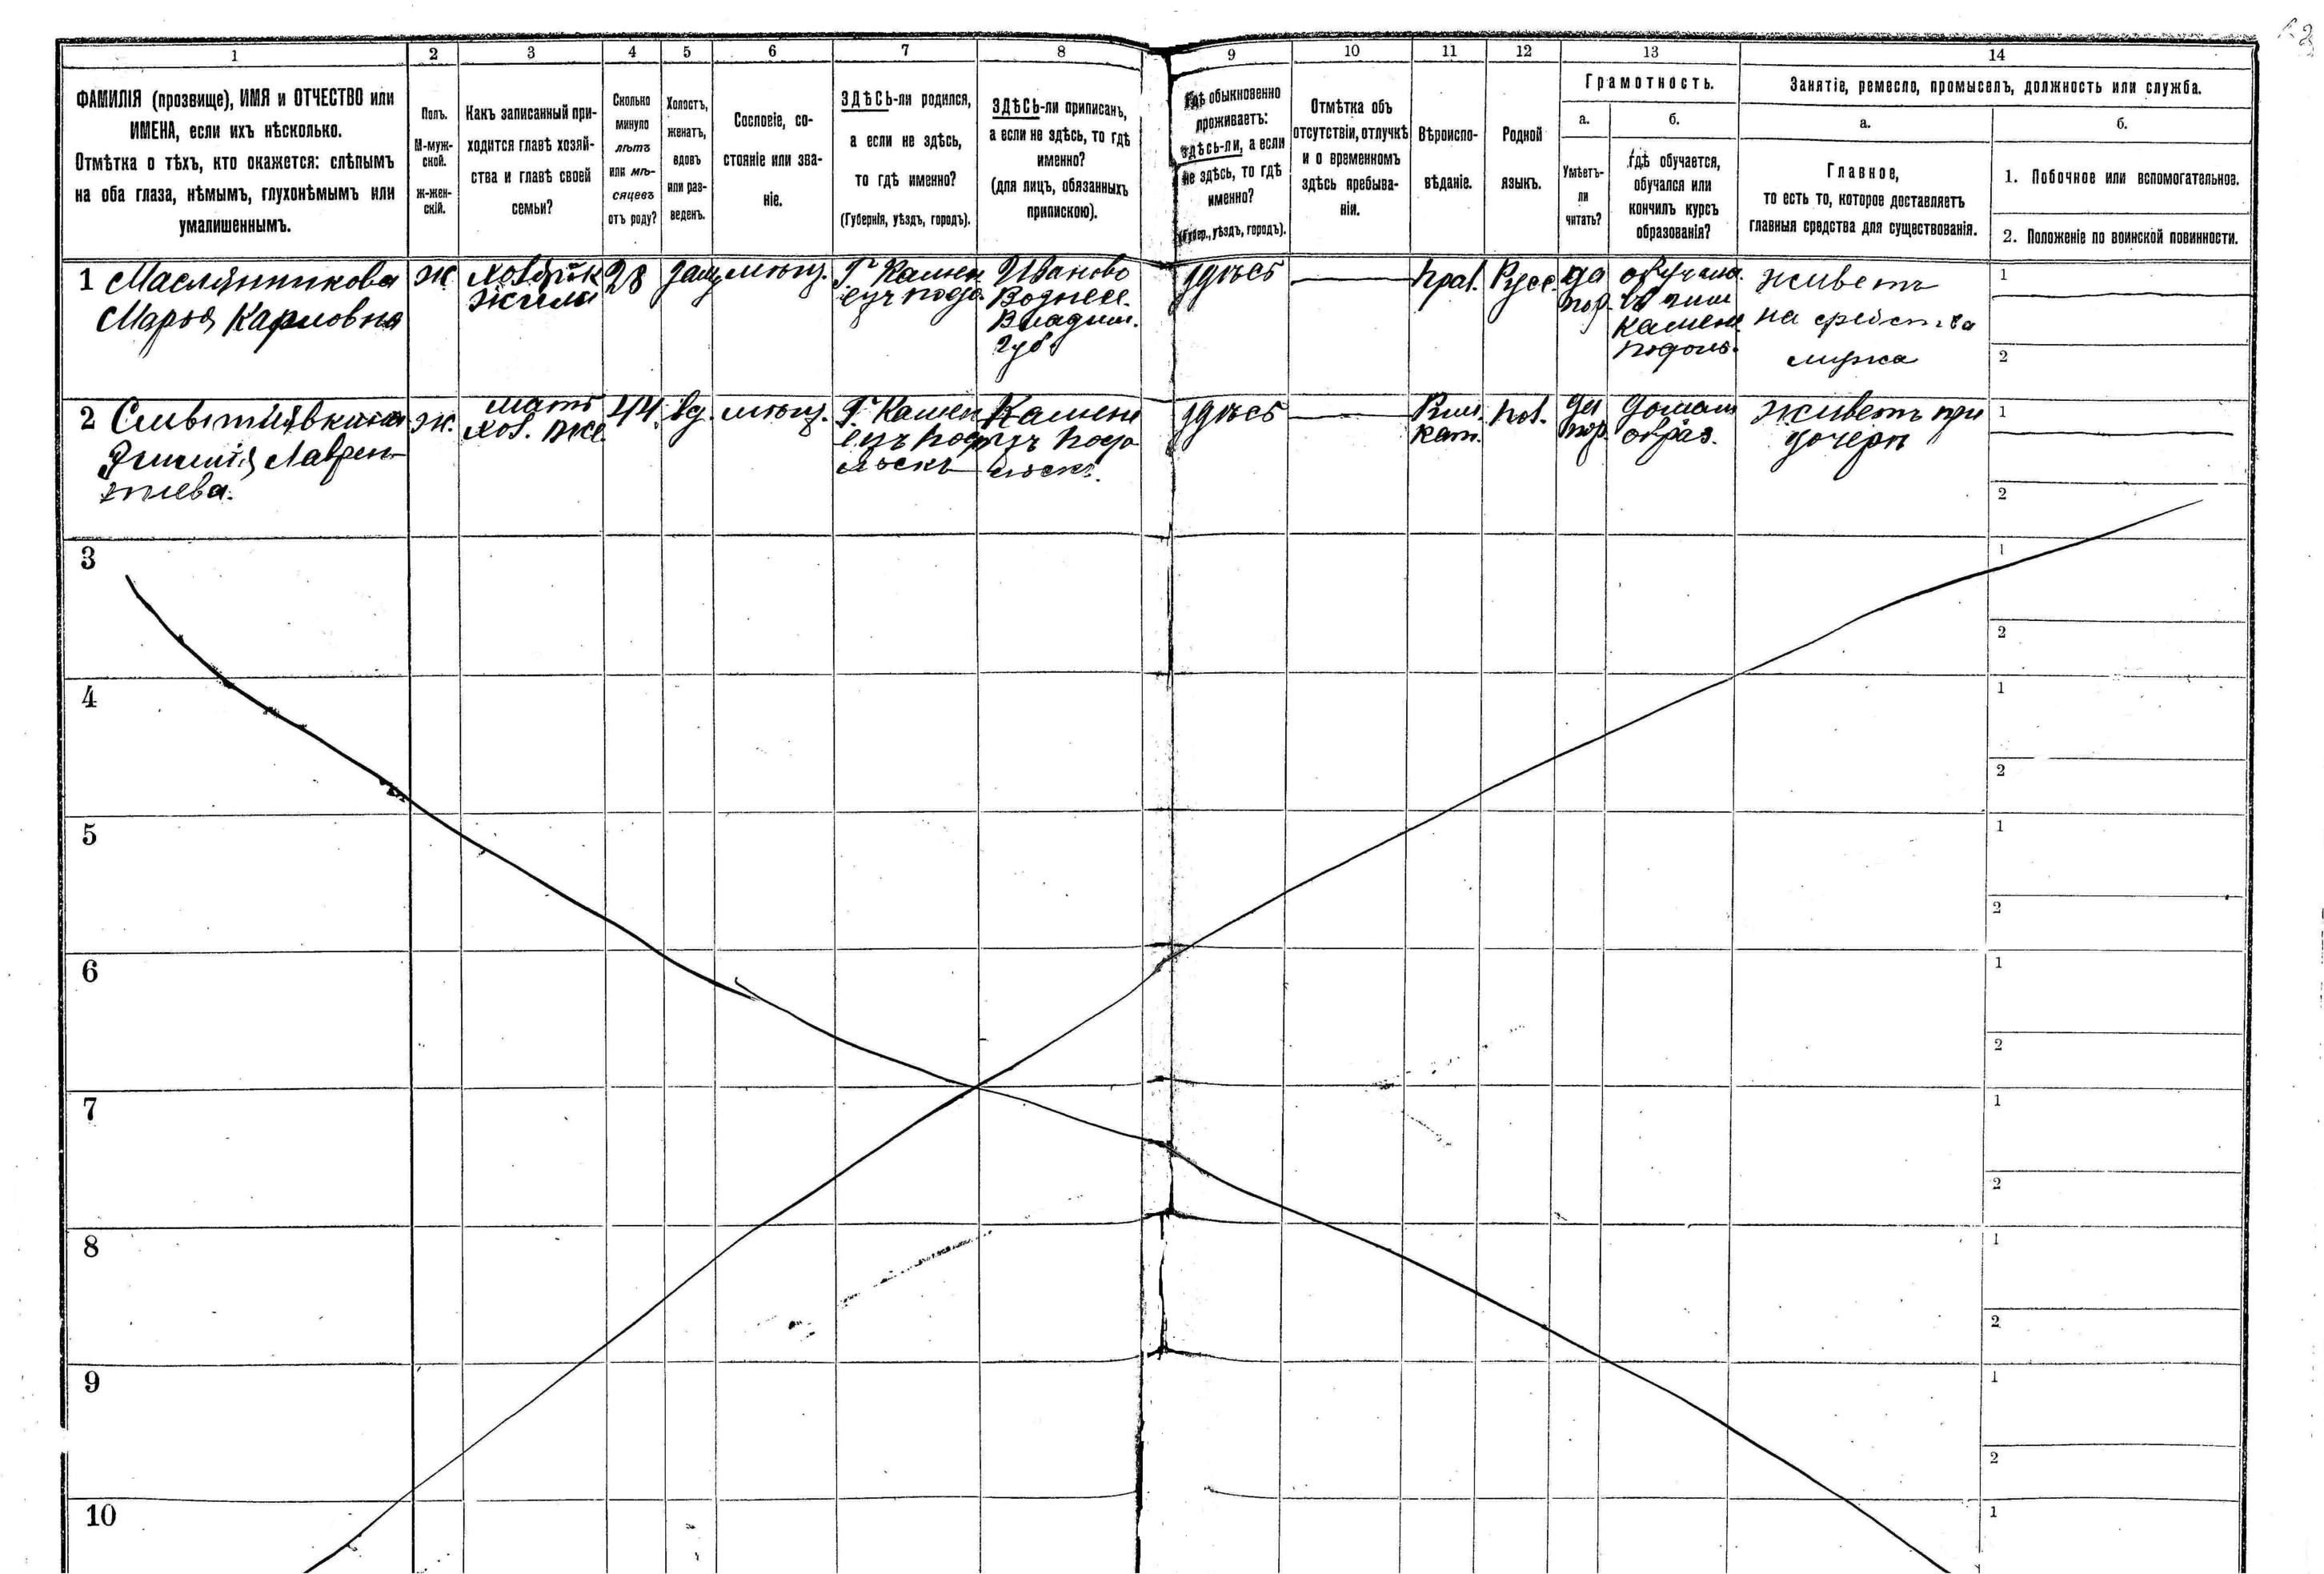 1 2 3 4 5 6 7 8 9 10 11 12 13 14
ФАМИЛІЯ (прозвище), ИМЯ и ОТЧЕСТВО или
ИМЕНА, если ихъ нѣсколько.
Отмѣтка о тѣхъ, кто окажется: слѣпымъ
на оба глаза, нѣмымъ, глухонѣмымъ или
умалишеннымъ.
Полъ.
М-муж-
ской.
Ж-жен-
скій.
Какъ записанный при-
ходится главѣ хозяй-
ства и главѣ своей
семьи?
Сколько
минуло
лѣтъ
или мѣ-
сяцевъ
отъ роду?
Холостъ,
женатъ,
вдовъ
или раз-
веденъ.
Сословіе, со-
стояніе или зва-
ніе.
ЗДѢСЬ-ли родился,
а если не здѣсь,
то гдѣ именно?
(Губернія, уѣздъ, городъ).
ЗДѢСЬ-ли приписанъ,
а если не здѣсь, то гдѣ
именно?
(для лицъ, обязанныхъ
припискою).
Гдѣ обыкновенно
проживаетъ:
здѣсь-ли, а если
не здѣсь, то гдѣ
именно?
(Губер., уѣздъ, городъ).
Отмѣтка объ
отсутствіи, отлучкѣ
и о временномъ
здѣсь пребыва-
ніи.
Вѣроиспо-
вѣданіе.
Родной
языкъ.
Грамотность.
а.
Умѣетъ-
ли
читать?
б.
Гдѣ обучается,
обучался или
кончилъ курсъ
образованія?
Занятіе, ремесло, промыселъ, должность или служба.
а.
Главное,
то есть то, которое доставляетъ
главныя средства для существованія.
б.
1. Побочное или вспомогательное.
2. Положеніе по воинской повинности.
1 Маслянникова
Марья Карловна
ж.
28
мѣщ.
Г. Камен
ецъ подо.
Иваново
Вознесе.
Владим.
губ.
здѣсь
Прав.
Русс.
да
обучала.
въ гим
Камен.
Подоль.
живетъ
на средства
мужа
1
2
2
Лаврен-
тьева.
ж.
мать
хоз. же
44
вд.
мѣщ.
Г. Камен
ецъ Подо
льскъ
Камене
цъ Подо
льскъ.
здѣсь
Рим.
кат.
да
домаш
образ.
живетъ при
дочери
1
2
3
1
2
4
1
2
5
1
2
6
1
2
7
1
2
8
1
2
9
1
2
10
1